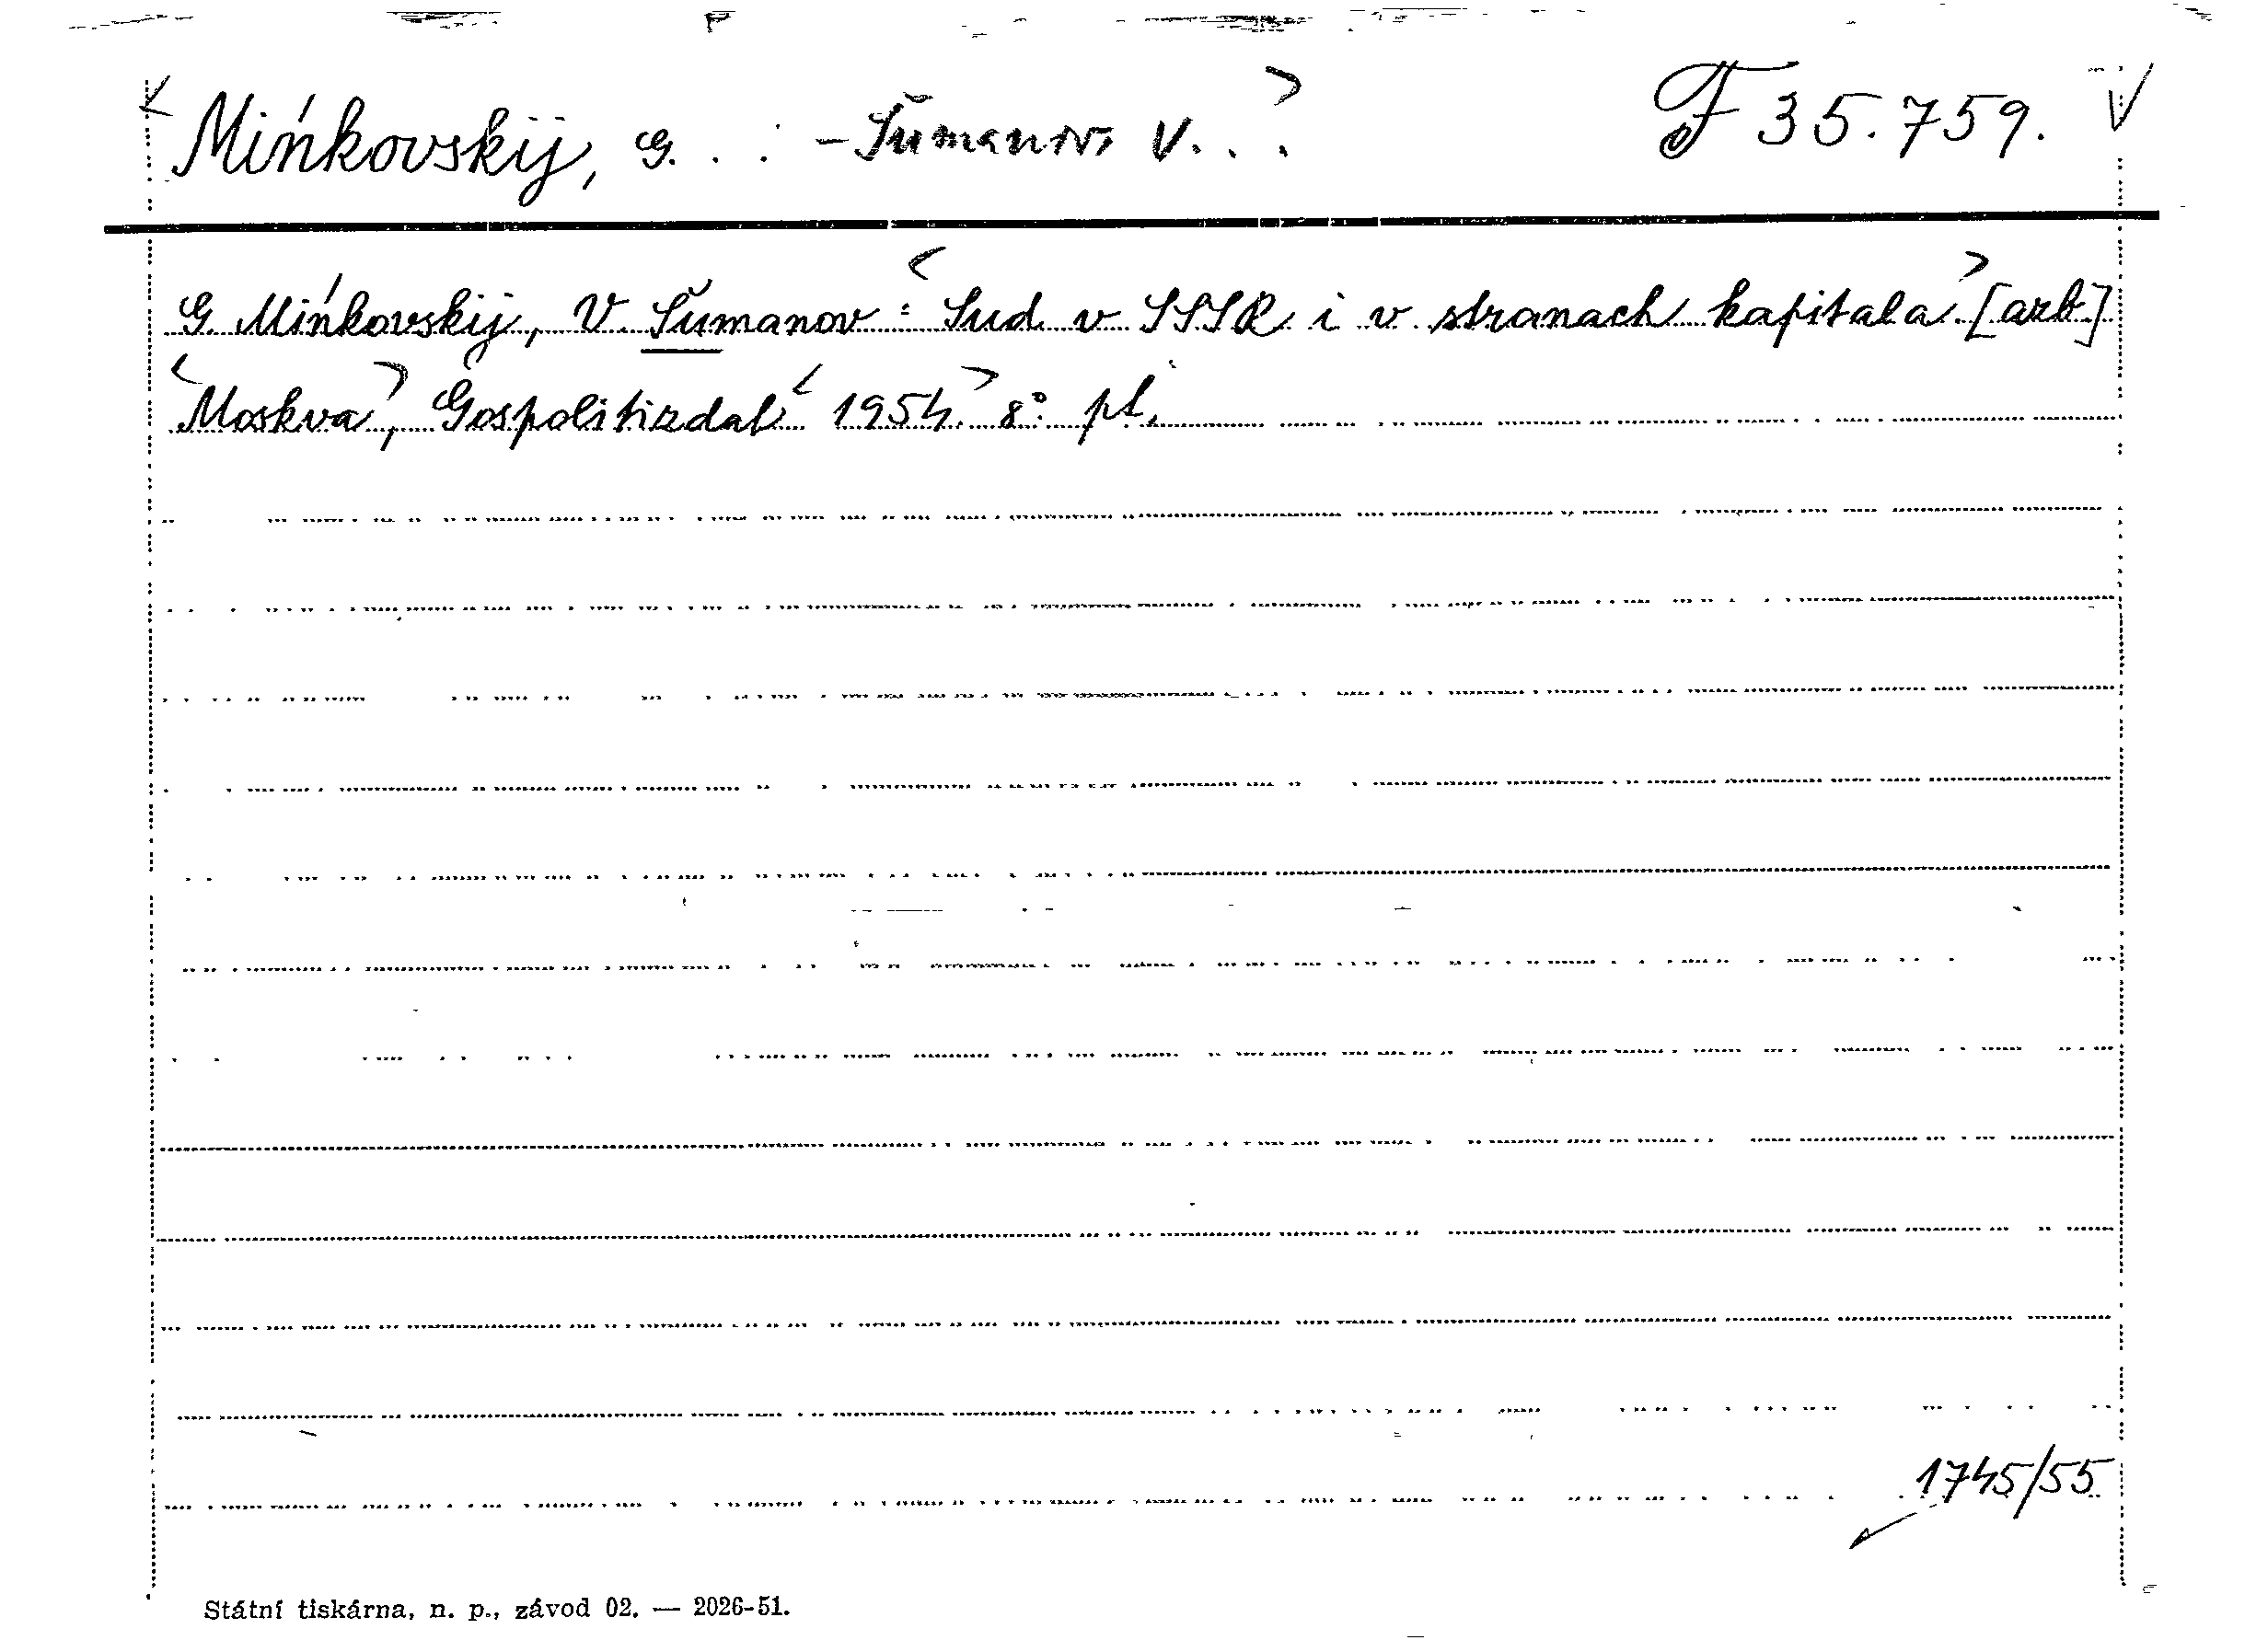 <Mińkovskij, G. . . – Šumanov, V. . .> F 35.759. V
G. Mińkovskij, V. Šumanov: <Sud v SSSR i v stranach kapitala> [azb]
<Moskva>, Gospolitizdat <1954.> 8° pl.
1745/55
Státní tiskárna, n. p., závod 02. — 2026-51.